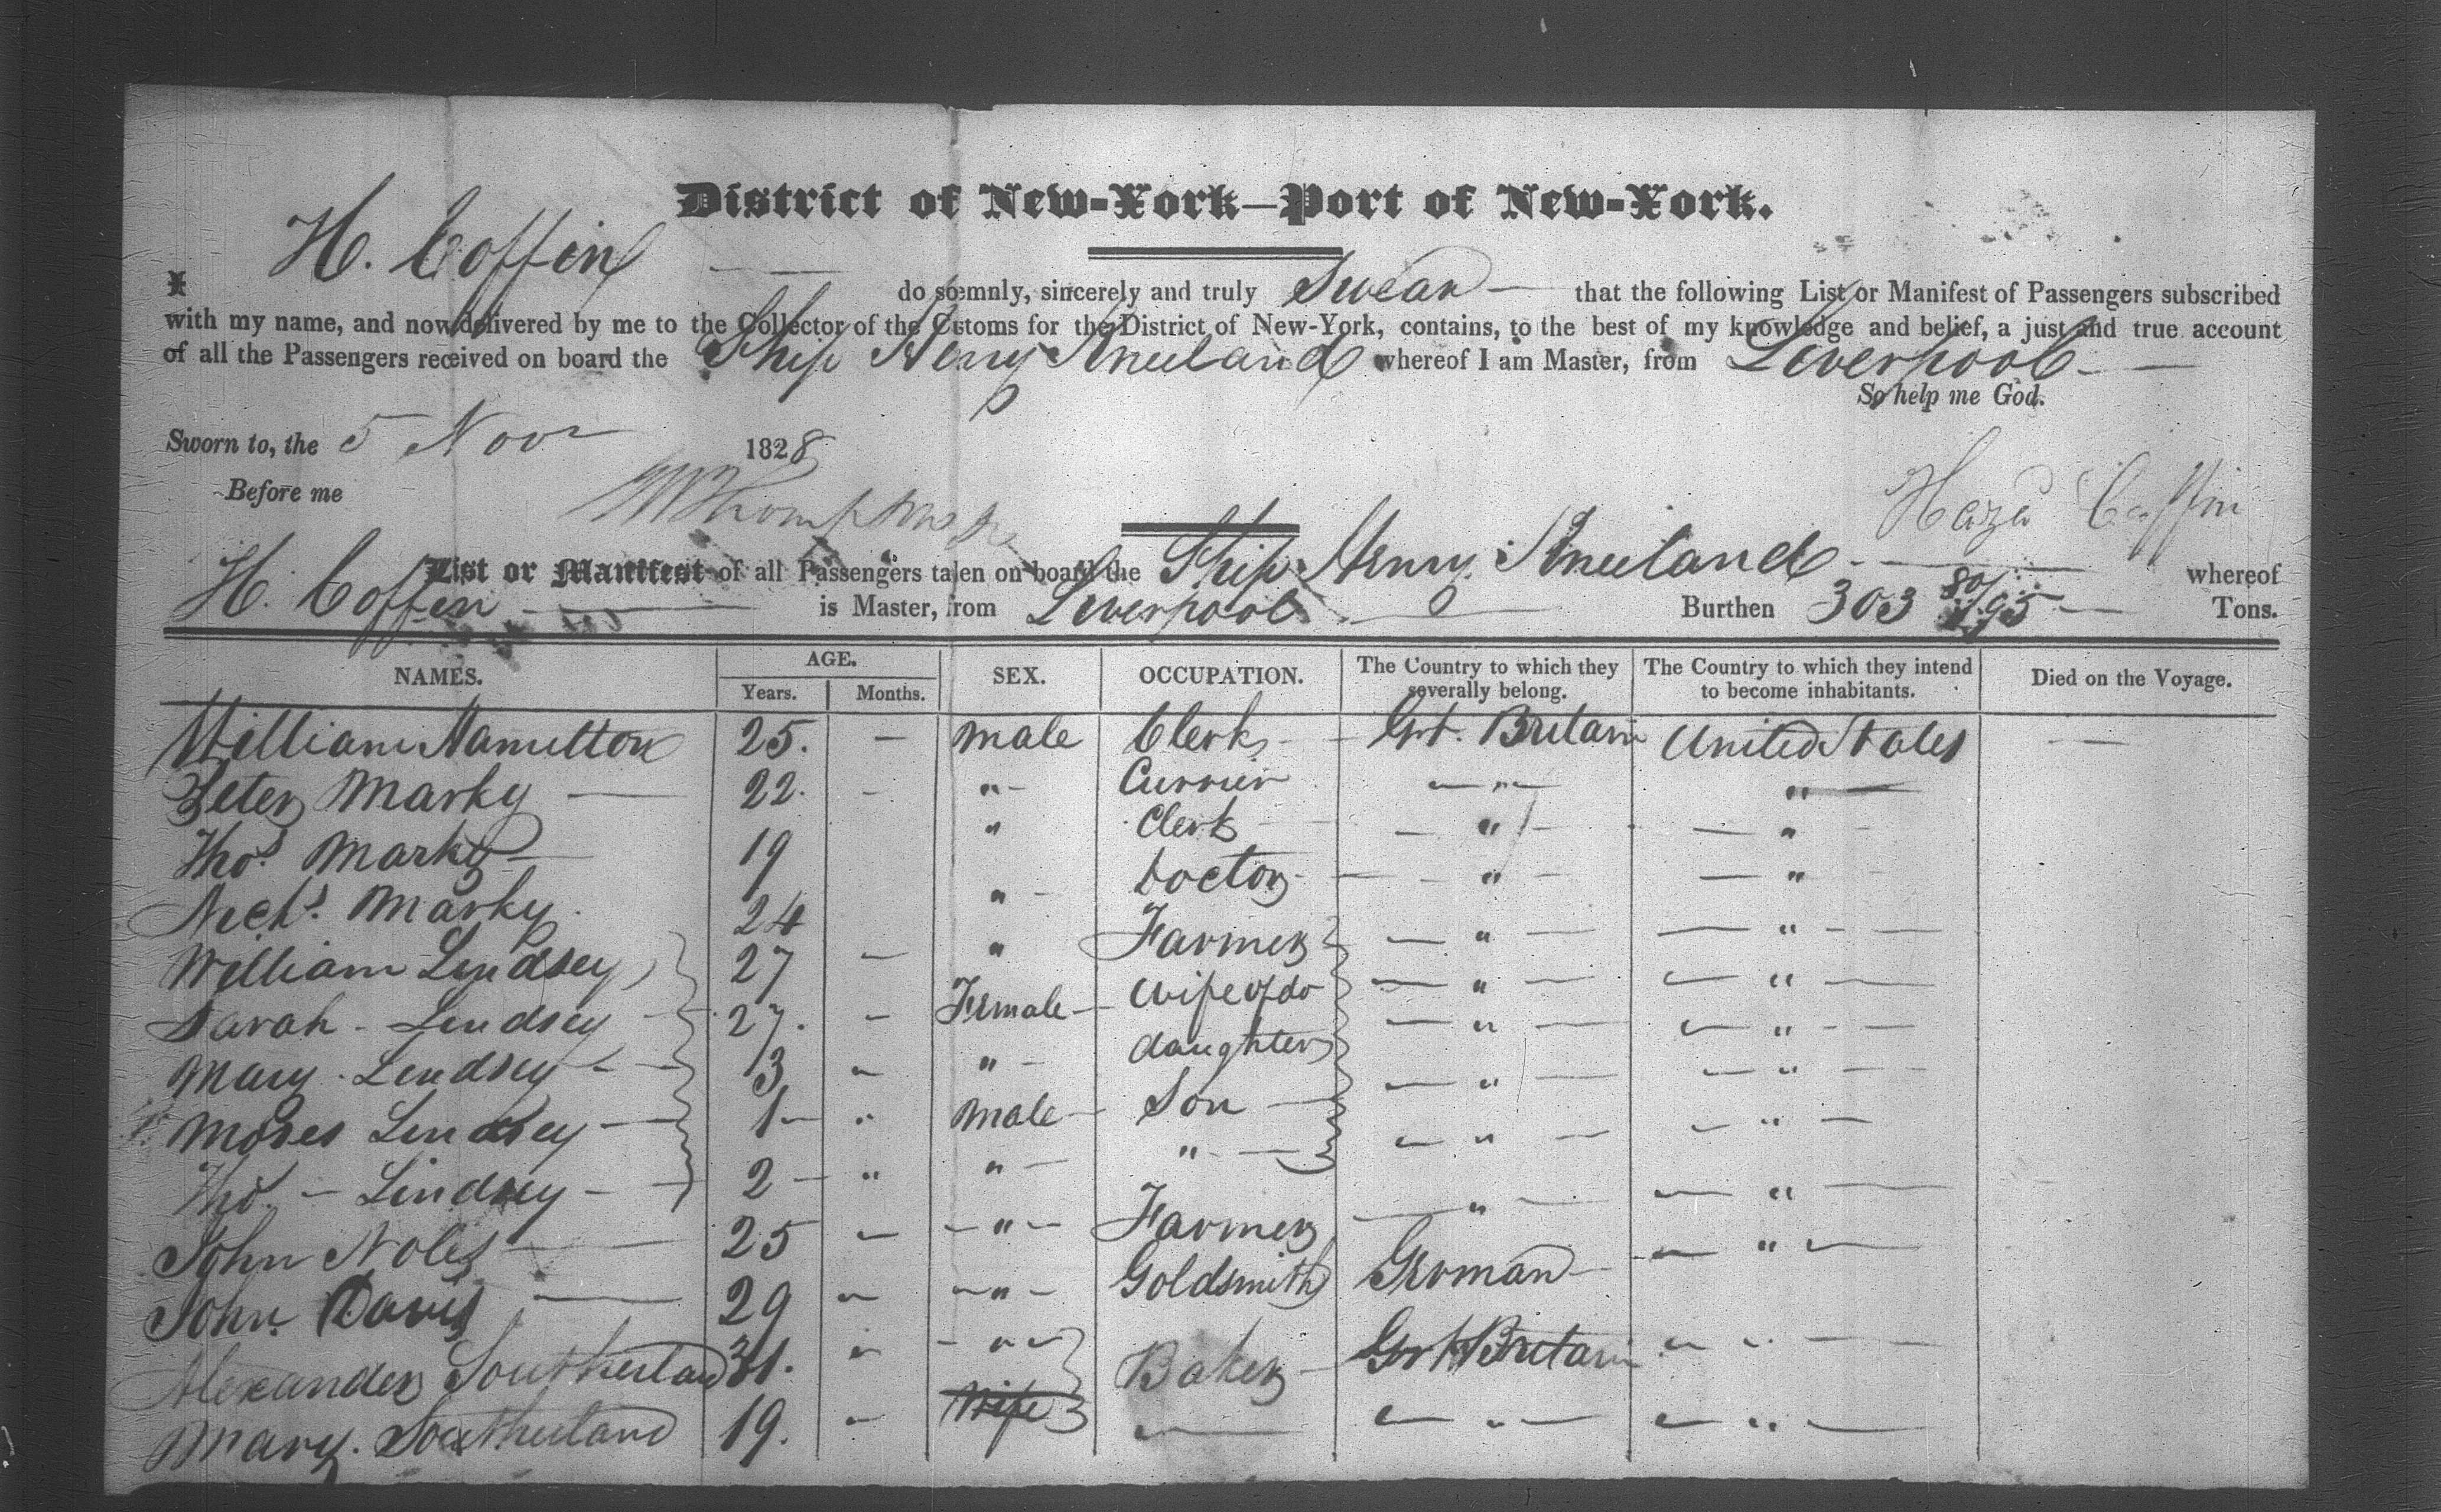 District of New-York—Port of New-York.
I H. Coffin — do solemnly, sincerely and truly Swear — that the following List or Manifest of Passengers subscribed
with my name, and now delivered by me to the Collector of the Customs for the District of New-York, contains, to the best of my knowledge and belief, a just and true account
of all the Passengers received on board the Ship Henry Kneeland whereof I am Master, from Liverpool —
So help me God.
Sworn to, the 5 Novr 1828
Before me
Coffin
List or Manifest of all Passengers taken on board the Ship Henry Kneeland — whereof
H. Coffin — is Master, from Liverpool — Burthen 303 80/95 — Tons.
NAMES. AGE. Years. Months. SEX. OCCUPATION. The Country to which they severally belong. The Country to which they intend to become inhabitants. Died on the Voyage.
William Hamilton 25. — male Clerk — Grt. Britain United States —
Peter Marky — 22. - " - Currier — " — "
Thos. Marky — 19 " Clerk — " — — "
Nichs. Marky 24 " - Doctor — " — — "
William Lindsey 27 — " Farmer — " — — " —
Sarah - Lindsey 27. - Female wife of do — " — — " —
Mary - Lindsey 3 - " - daughter — " — — " —
Moses Lindsey 1 - " male Son — — " — — " —
Thos. - Lindsey 2 - " " - " — — " — — " —
John Noles 25 - - " - Farmer — " — — " —
John Davis — 29 - - " - Goldsmith German — — " —
Alexander Southerland 31. " - " - Baker — Grt Britain - " —
Mary. Southerland 19. - Wife — — " — — " —